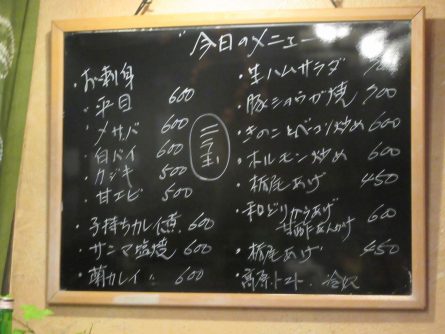 今日のメニュー
・お刺身
平目 600
メサバ 600
白バイ 600
カジキ 500
甘エビ 500
・子持ちカレイ煮 600
・サンマ塩焼 600
・カレイ 600
三玉
・生ハムサラダ
・豚ショウガ焼 700
・きのことベーコン炒め 600
・ホルモン炒め 600
・栃尾あげ 450
・和どりからあげ 600
甘酢あんかけ
・栃尾あげ 450
・高原トマト 冷奴